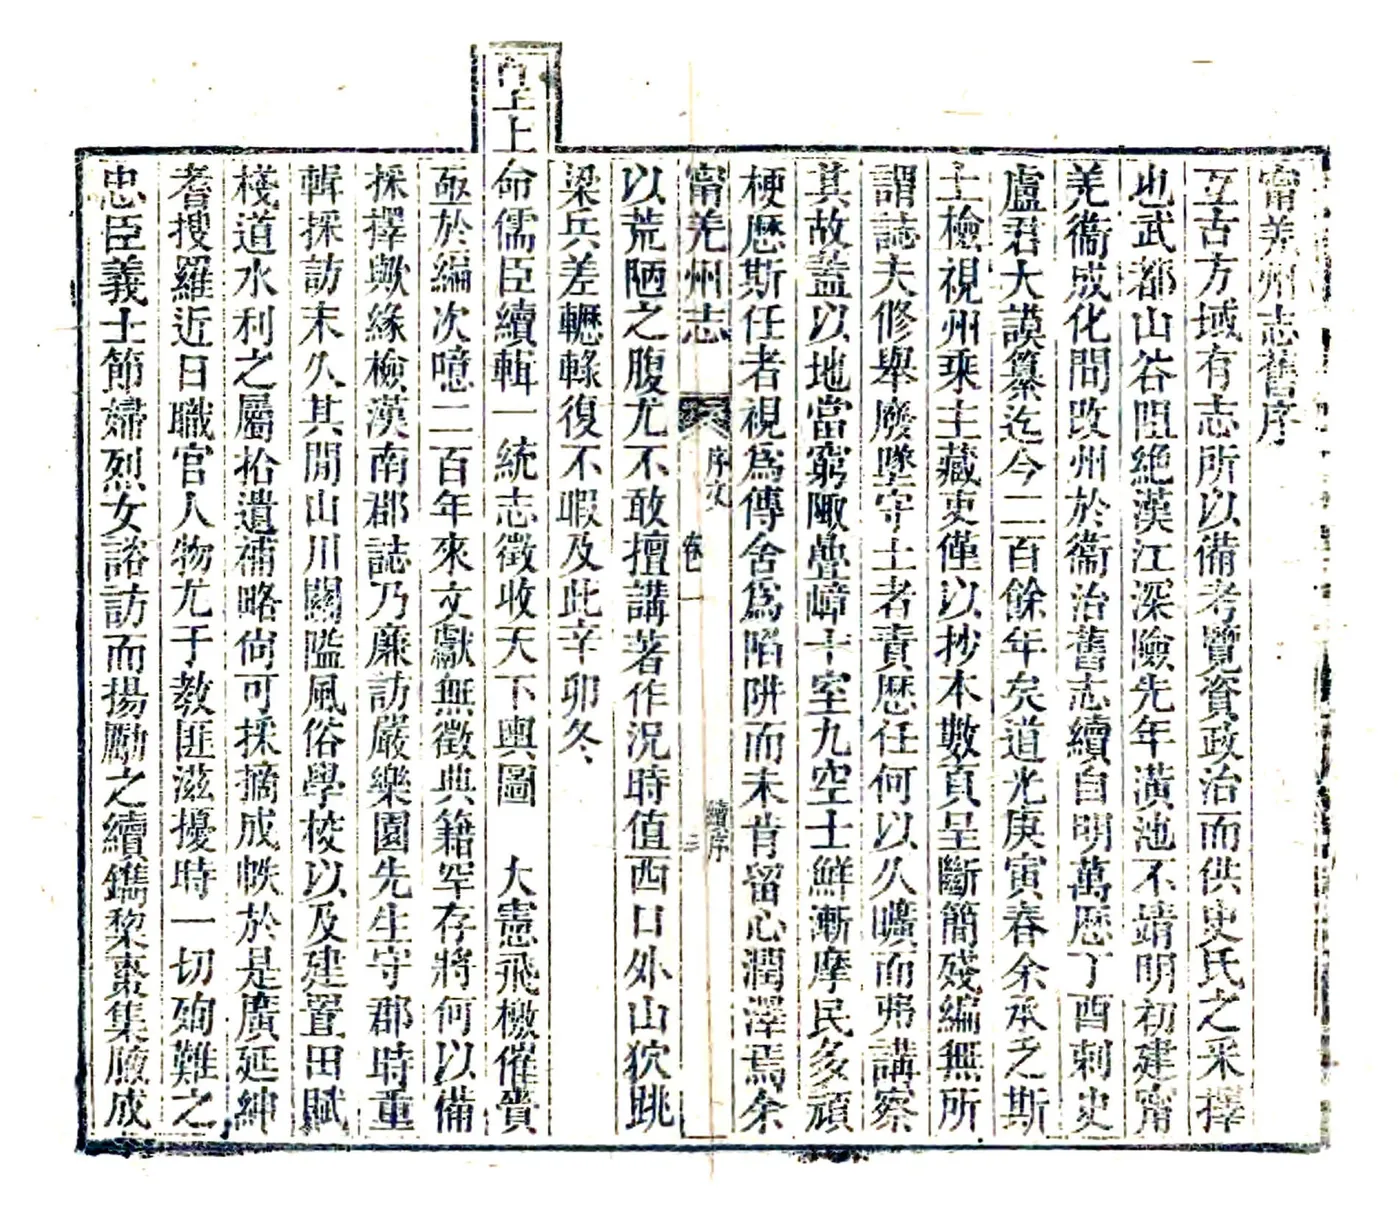 甯羌州志舊序
互古方域有志所以備考覽資政治而供史氏之采擇
也武都山谷阻絶漢江深險先年潢池不靖明初建甯
羌衞成化間改州於衞治舊志續自明萬歷丁酉刺史
盧君大謨纂迄今二百餘年矣道光庚寅春余承乏斯
土檢視州乘主藏吏僅以抄本數頁呈斷簡殘編無所
謂誌夫修舉廢墜守土者責歷任何以久曠而弗講察
其故蓋以地當窮陬疊嶂十室九空士鮮漸摩民多頑
梗歷斯任者視爲傳舍爲陷阱而未肯留心潤澤焉余
甯羌州志 序文 卷一 續序 三
以荒陋之腹尤不敢擅講著作況時值西口外山狄跳
梁兵差轣轆復不暇及此辛卯冬
上命儒臣續輯一統志徵收天下輿圖 大憲飛檄催賫
亟於編次噫二百年來文獻無徵典籍罕存將何以備
採擇歟緣檢漢南郡誌乃廉訪嚴樂園先生守郡時重
輯採訪未久其間山川關隘風俗學校以及建置田賦
棧道水利之屬拾遺補略尙可採摘成帙於是廣延紳
耆搜羅近日職官人物尤于教匪滋擾時一切殉難之
忠臣義士節婦烈女諮訪而揚勵之續鐫棃棗集腋成